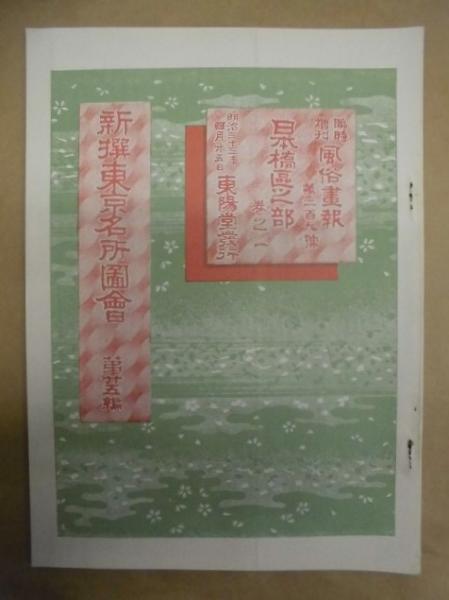 臨時增刊 風俗畫報 第二百九號
日本橋區之部 巻之一
明治三十三年四月廿五日 東陽堂發行
新撰東京名所圖會 第廿五編